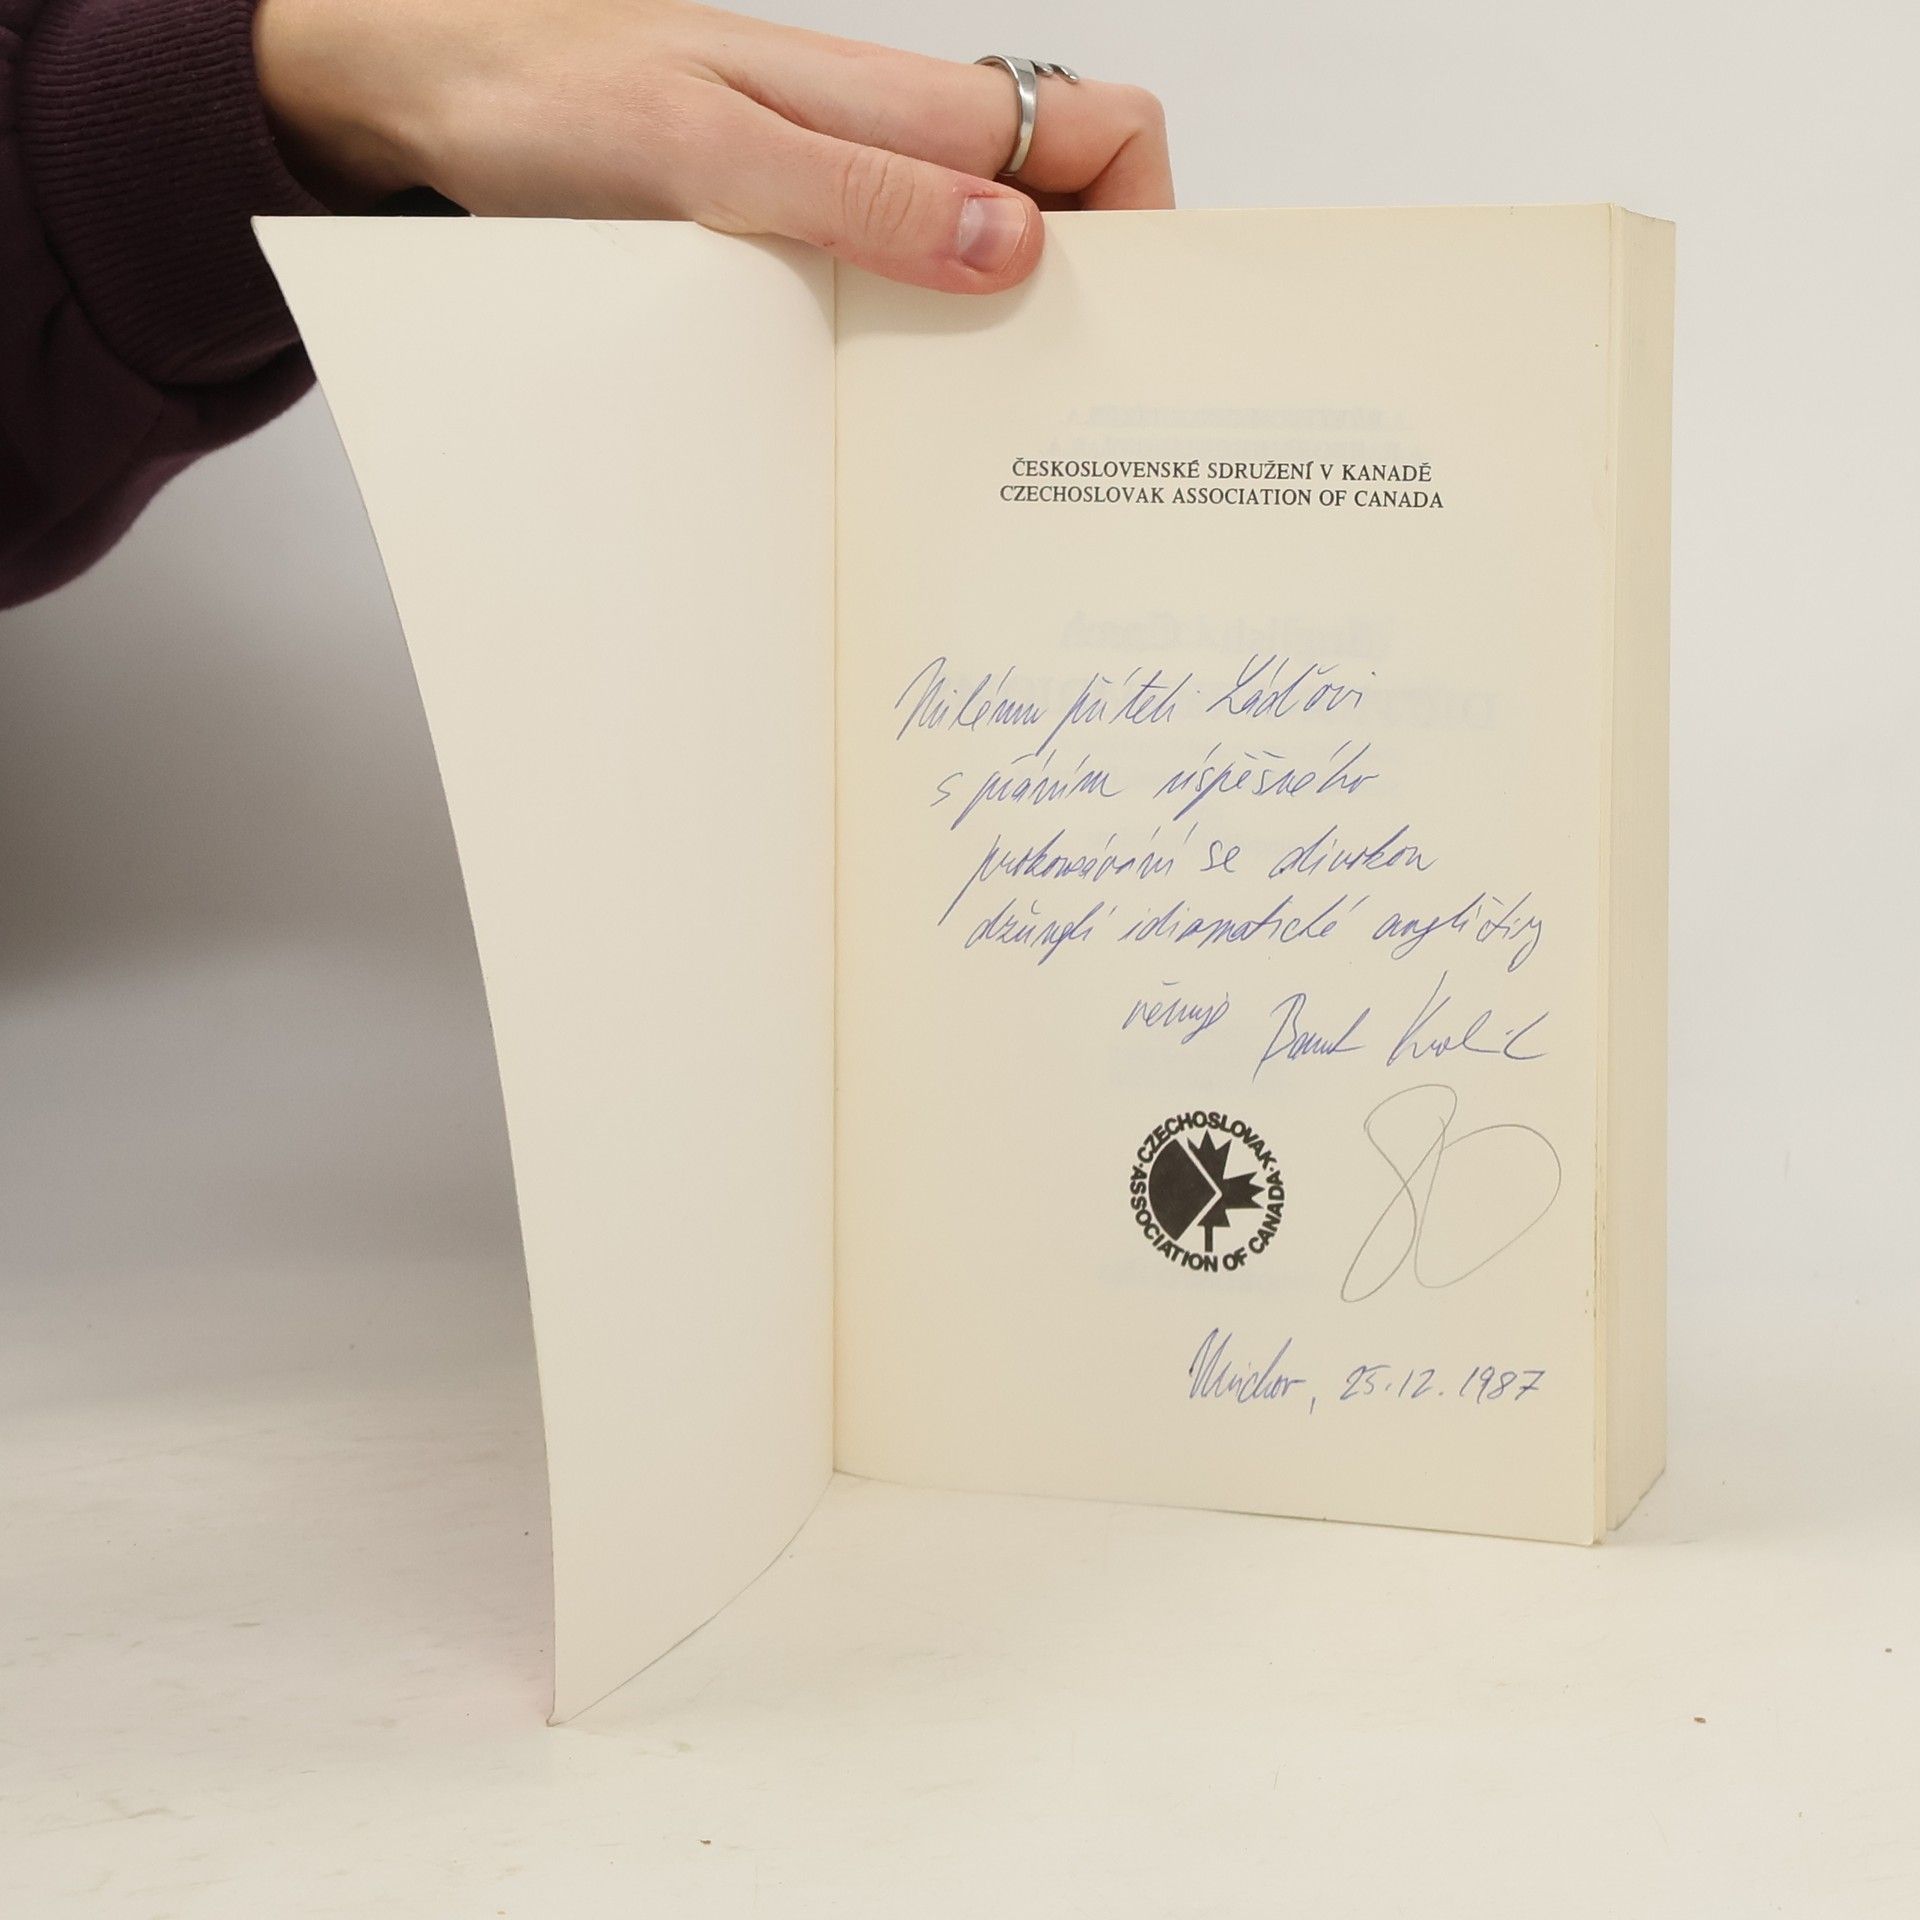 ČESKOSLOVENSKÉ SDRUŽENÍ V KANADĚ
CZECHOSLOVAK ASSOCIATION OF CANADA
Milému příteli Láďovi
s přáním úspěšného
prokousávání se divokou
džunglí idiomatické angličtiny
věnuje
CZECHOSLOVAK · ASSOCIATION OF CANADA ·
80
Mnichov, 25.12.1987